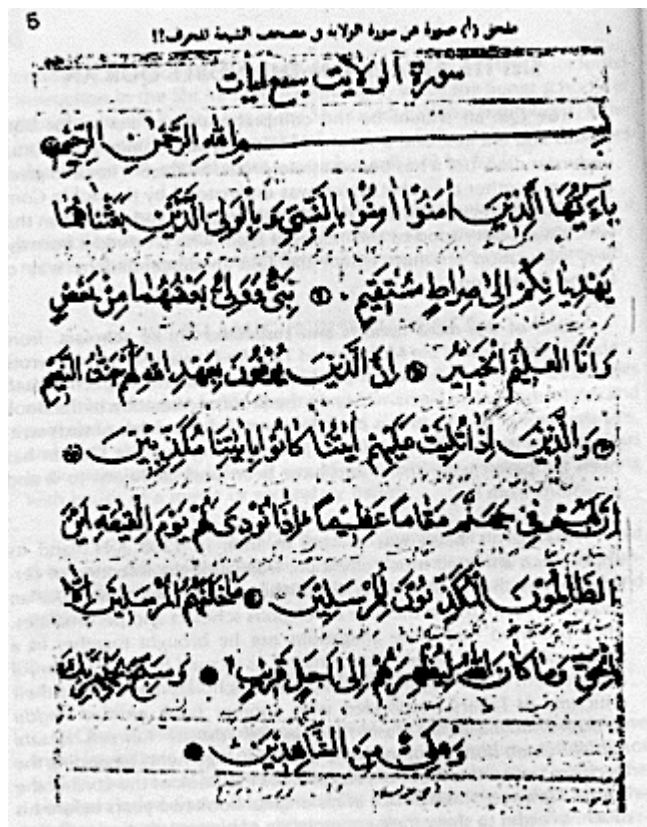 5
ملحق رقم صورة عن سورة الولاية في مصحف الشيعة المحرف!!
سورة الولايت سبع ايات
بسم الله الرحمن الرحيم
ياءيها الذين امنوا امنوا بالنبي وبالولي الذين بعثناهما
يهديانكم الى صراط مستقيم نبي وولي بعضهما من بعض
وانا العليم الخبير ان الذين يوفون بعهد الله لهم جنت النعيم
والذين اذا تليت عليهم ايتنا كانوا باياتنا مكذبين
ان لهم في جهنم مقاما عظيما اذا نودي لهم يوم القيمة اين
الظالمون المكذبون للمرسلين ما خلفهم المرسلين الا
بالحق وما كان الله ليظهرهم الى اجل قريب وسبح بحمد ربك
وعلي من الشاهدين